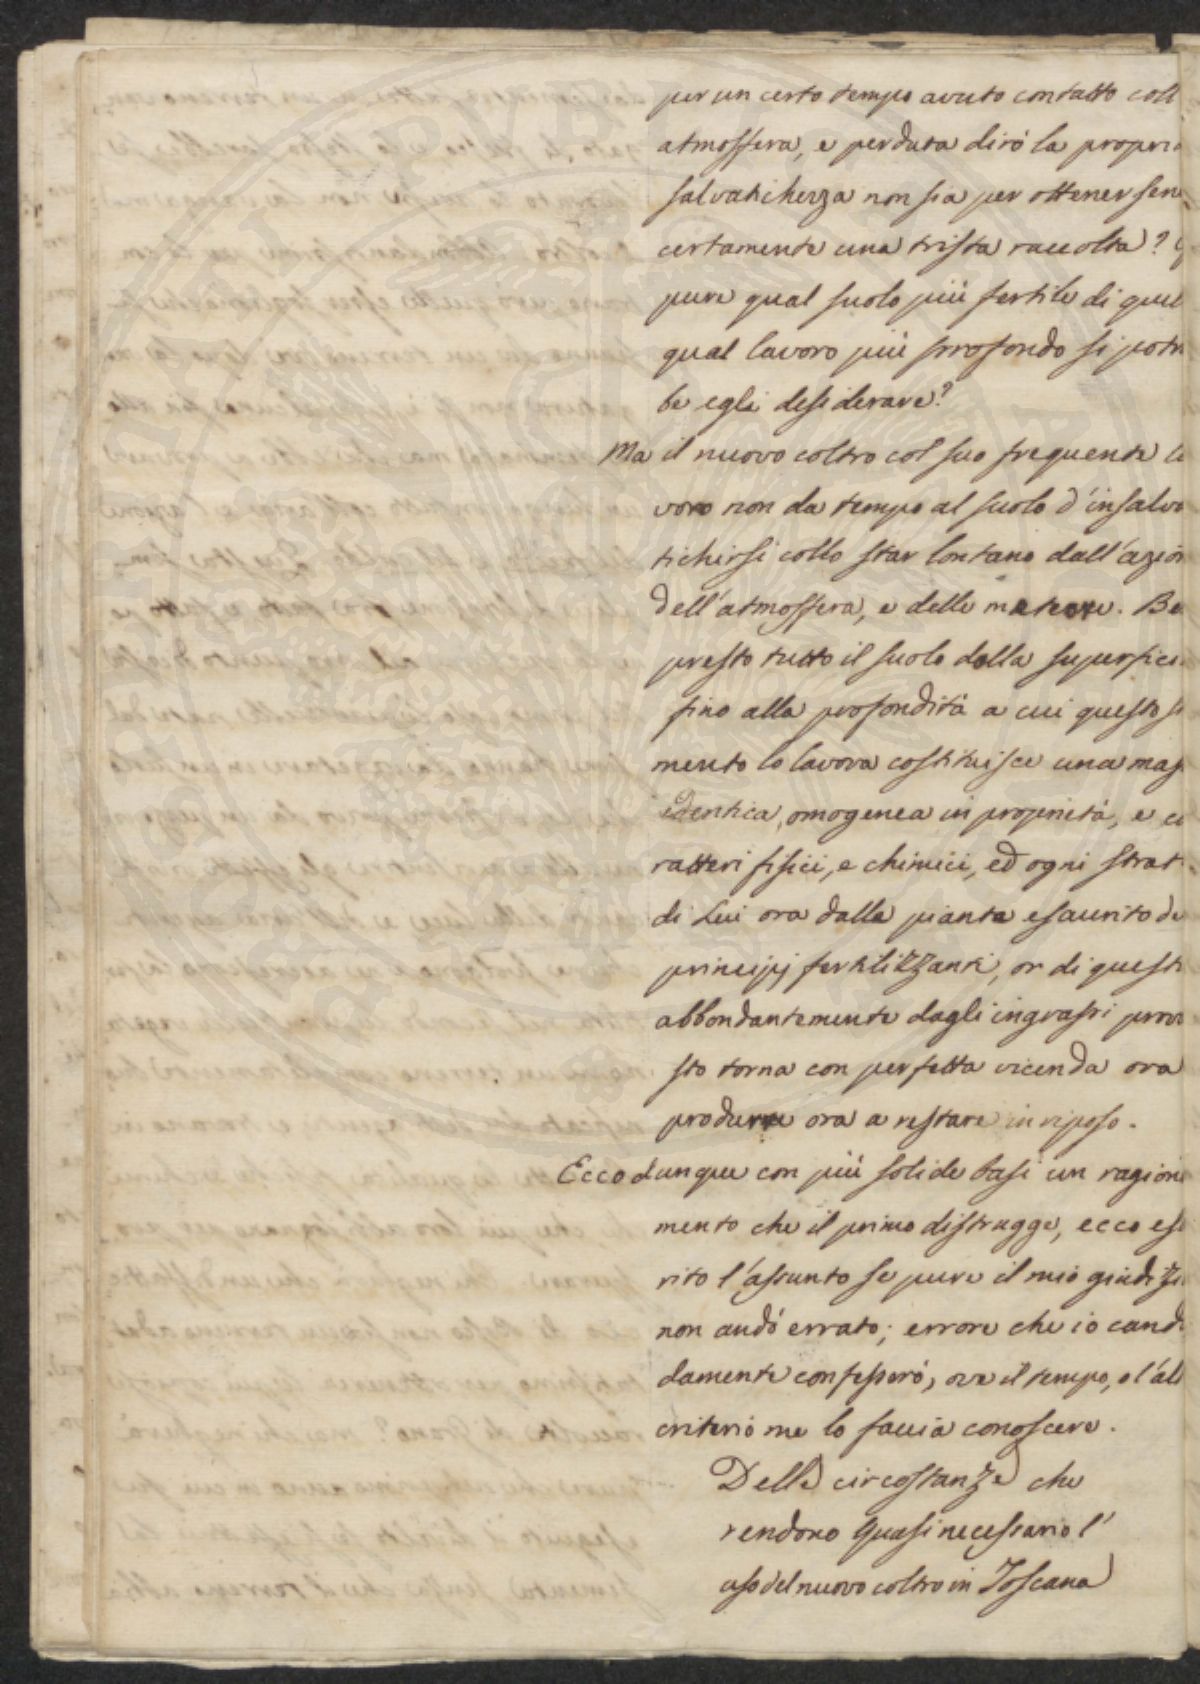 per un certo tempo avuto contatto coll
atmosfera, e perduta dirò la propria
salvatichezza non sia per ottenersene
certamente una trista raccolta?
pure qual suolo più fertile di quel
qual lavoro più profondo si potr
be egli desiderare?
Ma il nuovo coltro col suo frequente la
voro non da tempo al suolo d'insalva
tichirsi collo star lontano dall'azion
dell'atmosfera, e delle meteore. Be
presto tutto il suolo dalla superfici
fino alla profondità a cui questo s
mento lo lavora costituisce una mas
identica, omogenea in proprietà, e ca
ratteri fisici, e chimici, ed ogni strat
di Lui ora dalla pianta esaurito de
principj fertilizzanti, or di questi
abbondantemente dagli ingrassi provi
sto torna con perfetta vicenda ora
produrre ora a restare in riposo.
Ecco dunque con più solide basi un ragiona
mento che il primo distrugge, ecco esa
rito l'assunto se pure il mio giudizi
non andò errato; errore che io candi
damente confesserò, ove il tempo, o l'al
criterio me lo faccia conoscere.
Delle circostanze che
rendono quasi necessario l'
uso del nuovo coltro in Toscana